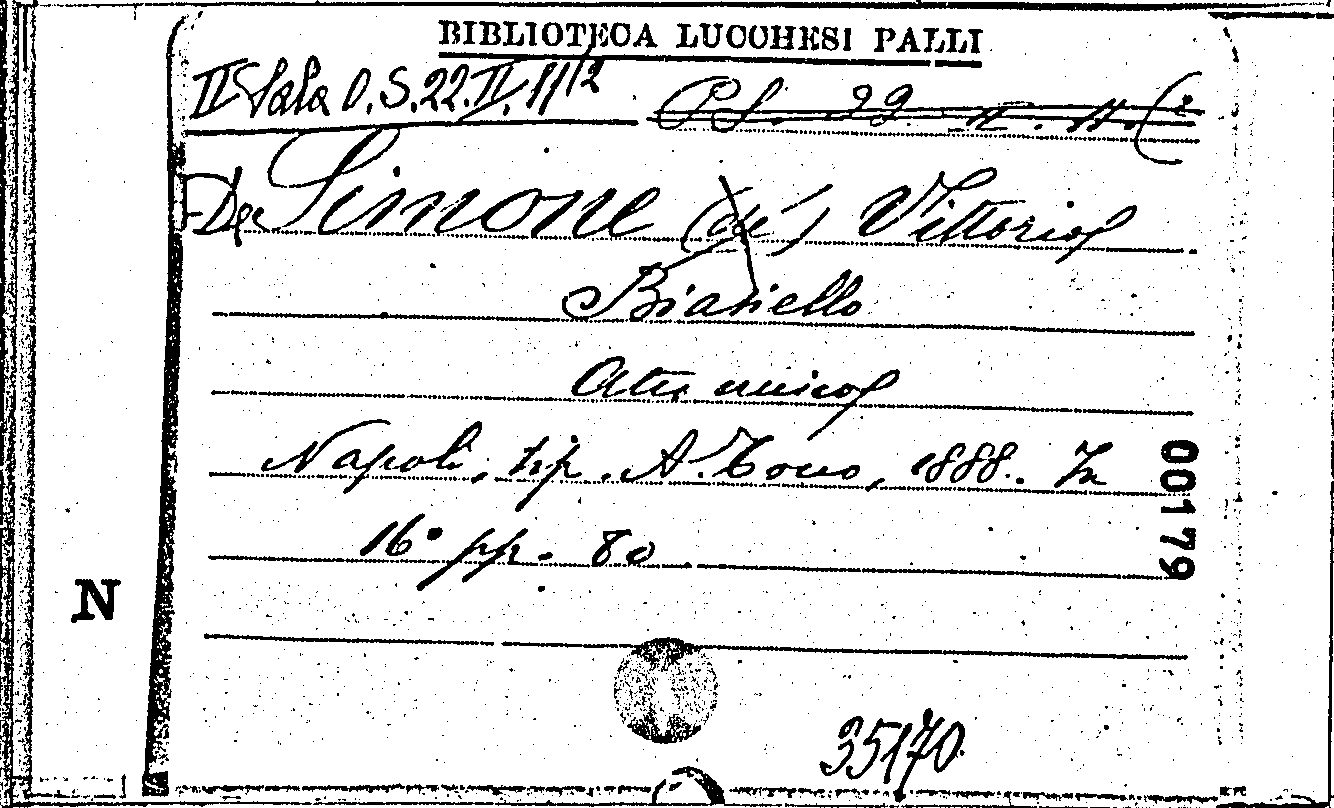 BIBLIOTECA LUCCHESI PALLI
II Sala O.S.22.II.11/12 P.S. 22 II. 11.(2
De Simone (de) Vittorio
Biasiello
Atto unico
Napoli, tip. A. Tocco, 1888. In
16° pp. 80
00179
N
35170